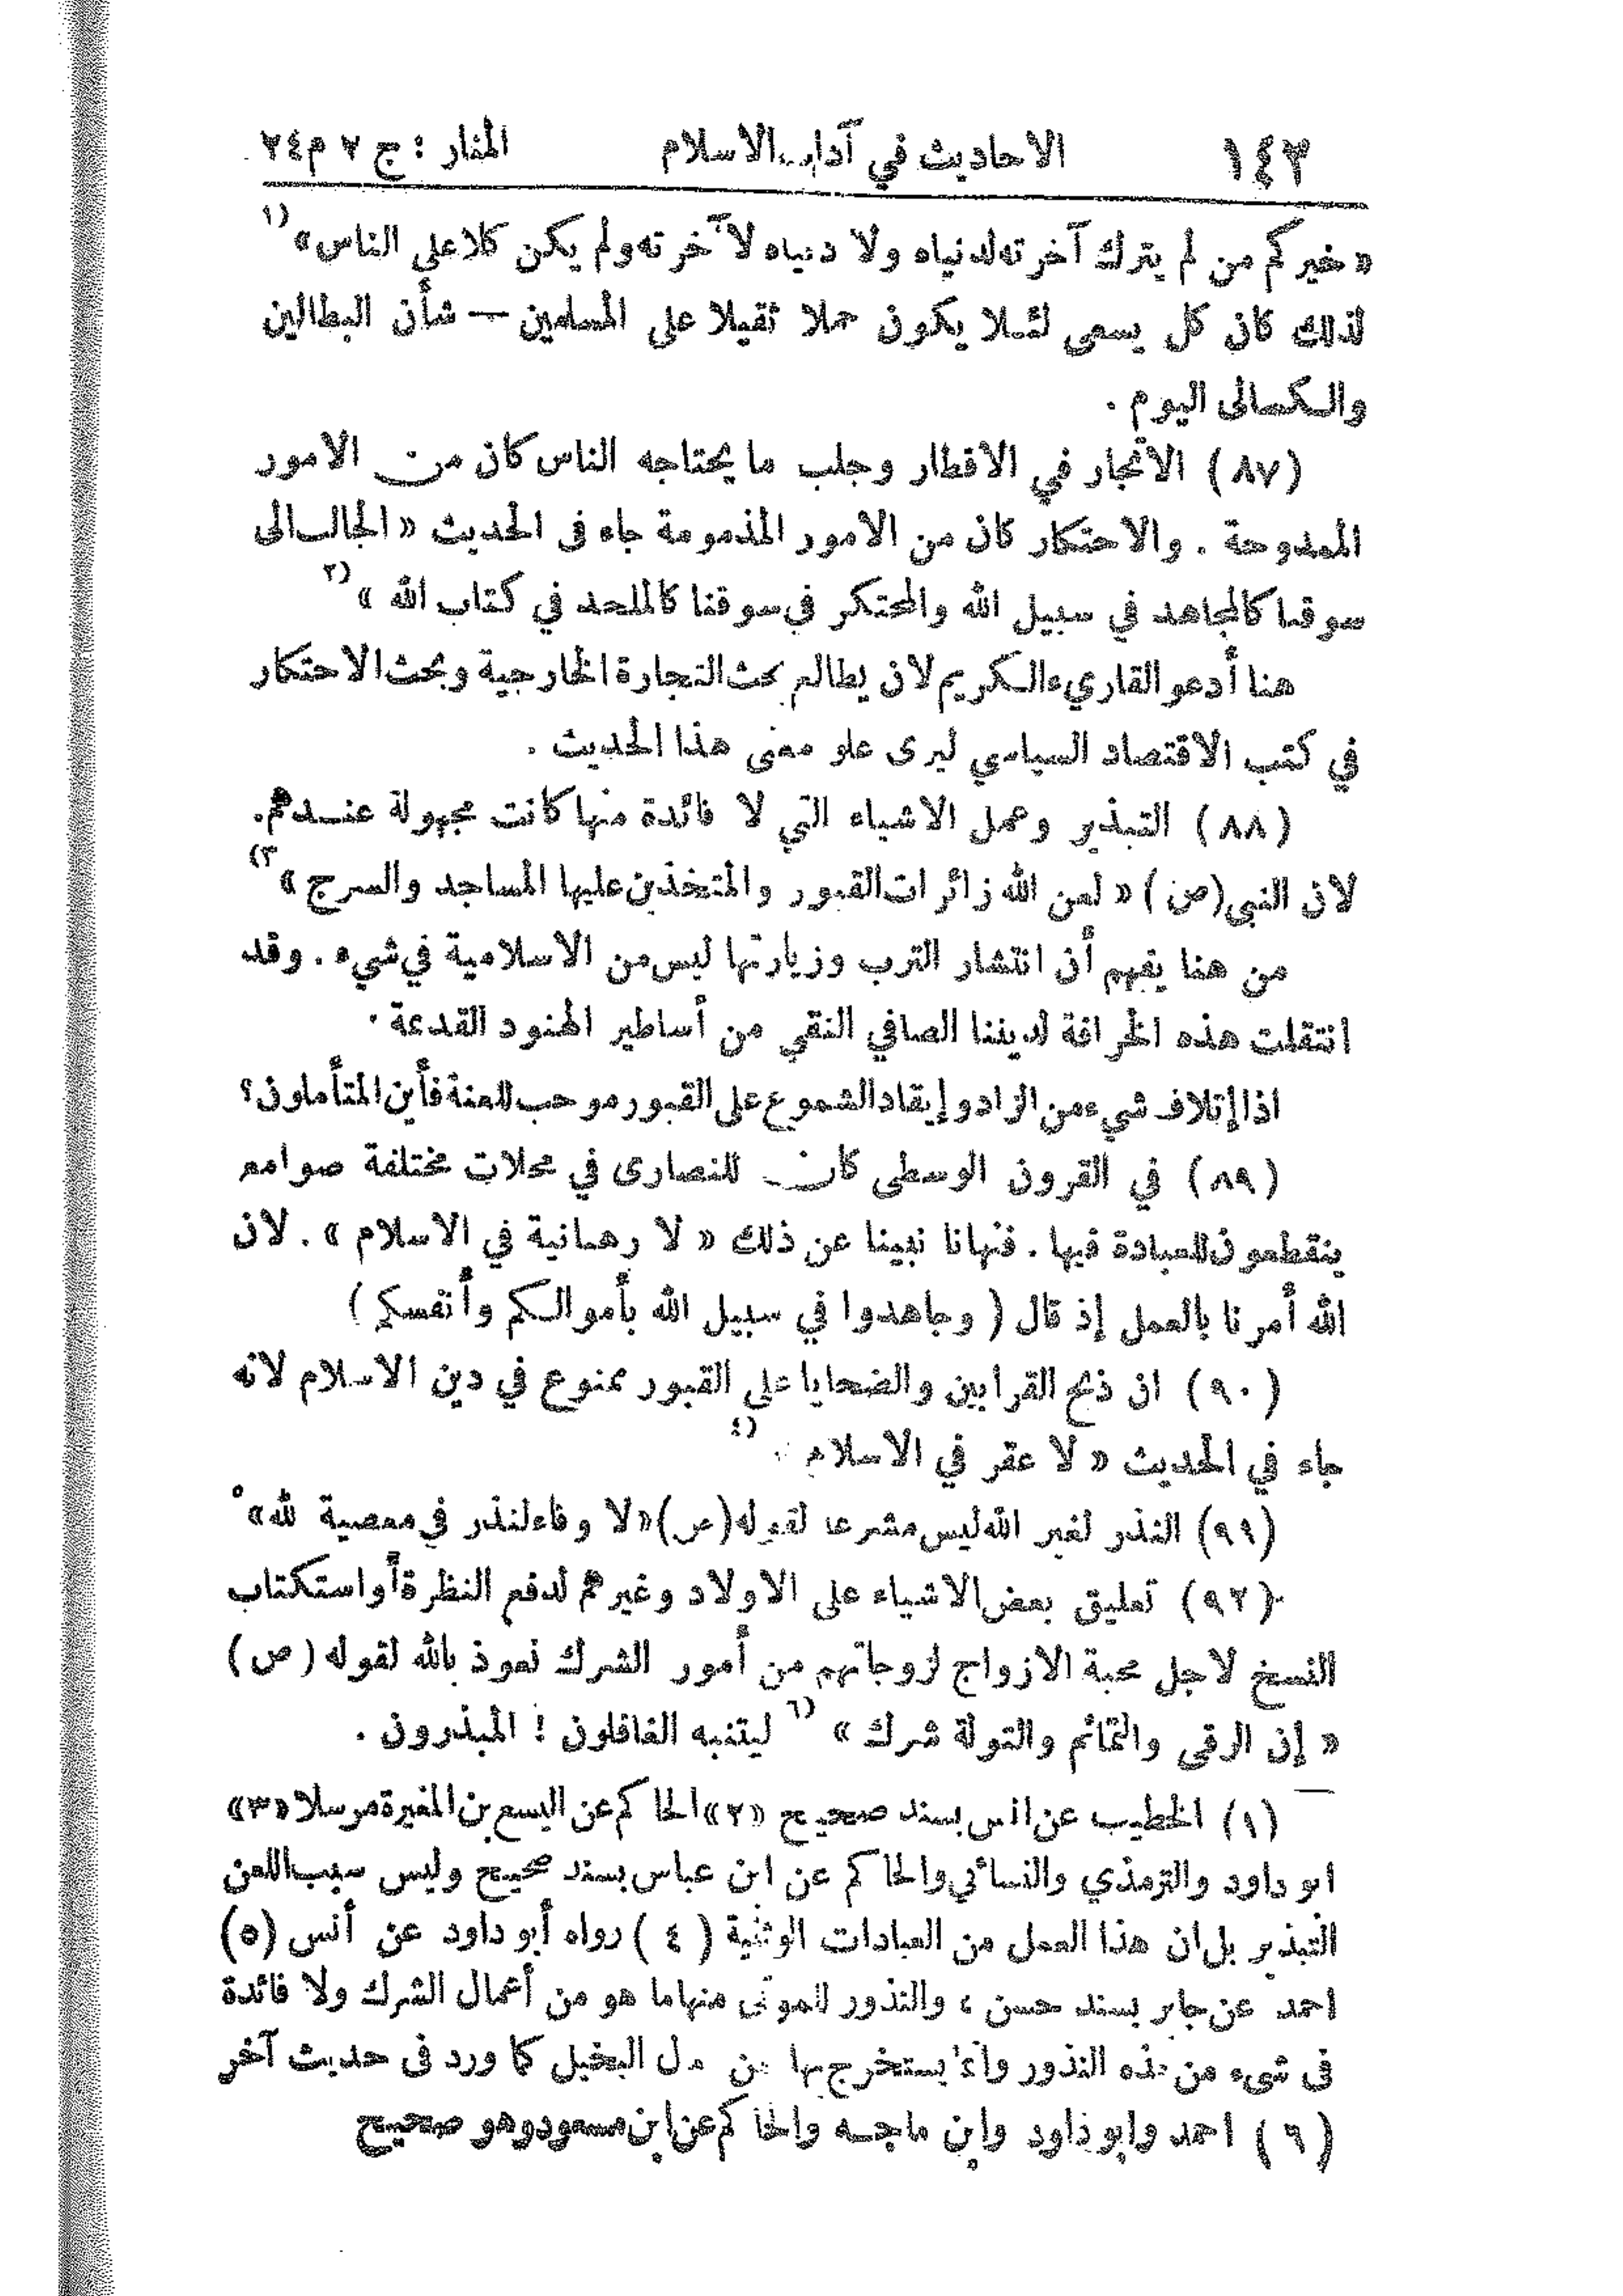 ١٤٢ الاحاديث في آداب الاسلام المنار : ج ٢ م٢٤
« خيركم من لم يترك آخرته لدنياه ولا دنياه لآخرته ولم يكن كلا على الناس » ١)
لذلك كان كل يسعى لئلا يكون حملا ثقيلا على المسلمين — شأن البطالين
والكسالى اليوم .
(٨٧) الاتجار في الاقطار وجلب ما يحتاجه الناس كان من الامور
الممدوحة . والاحتكار كان من الامور المذمومة جاء في الحديث « الجالب الى
سوقنا كالمجاهد في سبيل الله والمحتكر في سوقنا كالملحد في كتاب الله » ٢)
هنا أدعو القارىء الكريم لان يطالع بحث التجارة الخارجية وبحث الاحتكار
في كتب الاقتصاد السياسي ليرى علو معنى هذا الحديث .
(٨٨) التبذير وعمل الاشياء التي لا فائدة منها كانت مجهولة عندهم.
لان النبي (ص) « لعن الله زائرات القبور والمتخذين عليها المساجد والسرج » ٣)
من هنا يفهم أن انتشار الترب وزيارتها ليس من الاسلامية في شيء . وقد
انتقلت هذه الخرافة لديننا الصافي النقي من أساطير الهنود القديمة .
اذا إتلاف شيء من الزاد وإيقاد الشموع على القبور موجب للعنة فأين المتأملون ؟
(٨٩) في القرون الوسطى كان للنصارى في محلات مختلفة صوامع
ينقطعون للعبادة فيها . فنهانا نبينا عن ذلك « لا رهبانية في الاسلام » . لان
الله أمرنا بالعمل إذ قال ( وجاهدوا في سبيل الله بأموالكم وأنفسكم )
(٩٠) ان ذبح القرابين والضحايا على القبور ممنوع في دين الاسلام لانه
جاء في الحديث « لا عقر في الاسلام » ٤)
(٩١) النذر لغير الله ليس مشرعا لقوله (ص) « لا وفاء لنذر في معصية لله » ٥
(٩٢) تعليق بعض الاشياء على الاولاد وغيرهم لدفع النظرة أو استكتاب
النسخ لاجل محبة الازواج لزوجاتهم من أمور الشرك نعوذ بالله لقوله (ص)
« إن الرقى والتمائم والتولة شرك » ٦) ليتنبه الغافلون ! المبذرون .
(١) الخطيب عن انس بسند صحيح «٢» الحاكم عن اليسع بن المغيرة مرسلا «٣»
ابو داود والترمذي والنسائي والحاكم عن ابن عباس بسند صحيح وليس سبب اللعن
التبذير بل ان هذا العمل من العبادات الوثنية (٤) رواه أبو داود عن أنس (٥)
احمد عن جابر بسند حسن ، والنذور للموتى منها ما هو من أعمال الشرك ولا فائدة
في شيء من هذه النذور وانما يستخرج بها من مال البخيل كما ورد في حديث آخر
(٦) احمد وابو داود وابن ماجه والحاكم عن ابن مسعود وهو صحيح